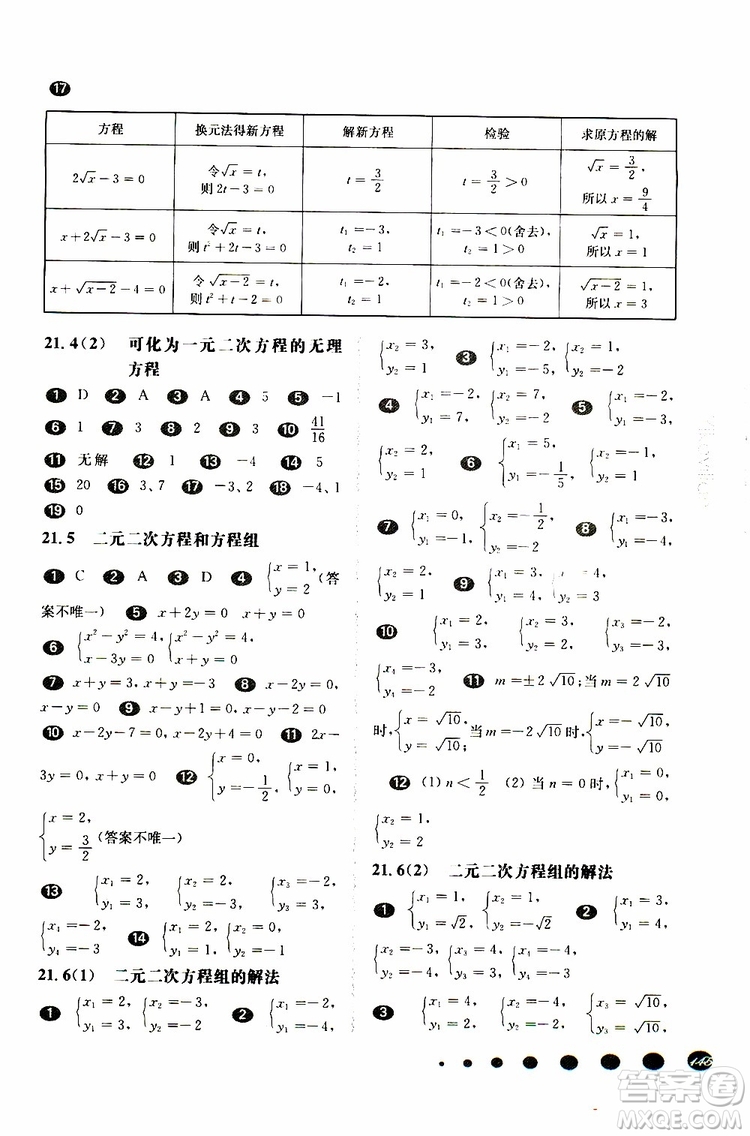 17
方程 换元法得新方程 解新方程 检验 求原方程的解
2√x－3＝0 令√x＝t，则 2t－3＝0 t＝3/2 t＝3/2＞0 √x＝3/2，所以 x＝9/4
x＋2√x－3＝0 令√x＝t，则 t²＋2t－3＝0 t₁＝－3，t₂＝1 t₁＝－3＜0(舍去)，t₂＝1 √x＝1，所以 x＝1
x＋√(x－2)－4＝0 令√(x－2)＝t，则 t²＋t－2＝0 t₁＝－2，t₂＝1 t₁＝－2＜0(舍去)，t₂＝1 √(x－2)＝1，所以 x＝3
21.4(2) 可化为一元二次方程的无理
方程
1 D 2 A 3 A 4 5 5 －1
6 1 7 3 8 2 9 3 10 41/16
11 无解 12 1 13 －4 14 5
15 20 16 3、7 17 －3、2 18 －4、1
19 0
21.5 二元二次方程和方程组
1 C 2 A 3 D 4 {x＝1，y＝2 (答
案不唯一) 5 x＋2y＝0 x＋y＝0
6 {x²－y²＝4，x－3y＝0 {x²－y²＝4，x＋y＝0
7 x＋y＝3，x＋y＝－3 8 x－2y＝0，
x－y＝0 9 x－y＋1＝0，x－y－2＝0
10 x－2y－7＝0，x－2y＋4＝0 11 2x－
3y＝0，x＋y＝0 12 {x＝0，y＝－1/2，{x＝1，y＝1，
{x＝2，y＝3/2 (答案不唯一)
13 {x₁＝2，y₁＝3，{x₂＝3，y₂＝2，{x₃＝－2，y₃＝－3，
{x₄＝－3，y₄＝－2 14 {x₁＝2，y₁＝3，{x₂＝－2，y₂＝－3
21.6(1) 二元二次方程组的解法
1 {x₁＝2，y₁＝3，{x₂＝－3，y₂＝－2 2 {x₁＝2，y₁＝1，
{x₂＝3，y₂＝0 3 {x₁＝－2，y₁＝－5，{x₂＝1，y₂＝－2
4 {x₁＝－2，y₁＝7，{x₂＝7，y₂＝－2 5 {x₁＝2，y₁＝1，
{x₂＝1，y₂＝2 6 {x₁＝5，y₁＝－1/5，{x₂＝－1，y₂＝1
7 {x₁＝0，y₁＝－1，{x₂＝－1/2，y₂＝0 8 {x₁＝1，y₁＝－3，
x₁＝4，y₁＝5，
{x₂＝3，y₂＝－1 9 x₂＝－5，y₂＝－4
10 {x₁＝2，y₁＝3，{x₂＝－2，y₂＝－3，{x₃＝3，y₃＝2，
{x₄＝－3，y₄＝－2 11 m＝±2√10；当 m＝2√10
时，{x＝√10，y＝√10；当 m＝－2√10时，{x＝－√10，y＝－√10
12 (1) n＜1/2 (2) 当 n＝0时，{x₁＝0，y₁＝0，
{x₂＝1，y₂＝2
21.6(2) 二元二次方程组的解法
1 {x₁＝1，y₁＝√2，{x₂＝1，y₂＝－√2 2 {x₁＝3，y₁＝4，
{x₂＝－3，y₂＝－4，{x₃＝4，y₃＝3，{x₄＝－4，y₄＝－3
3 {x₁＝4，y₁＝2，{x₂＝－4，y₂＝－2，{x₃＝√10，y₃＝√10，
145
答案圈
MXQE.COM